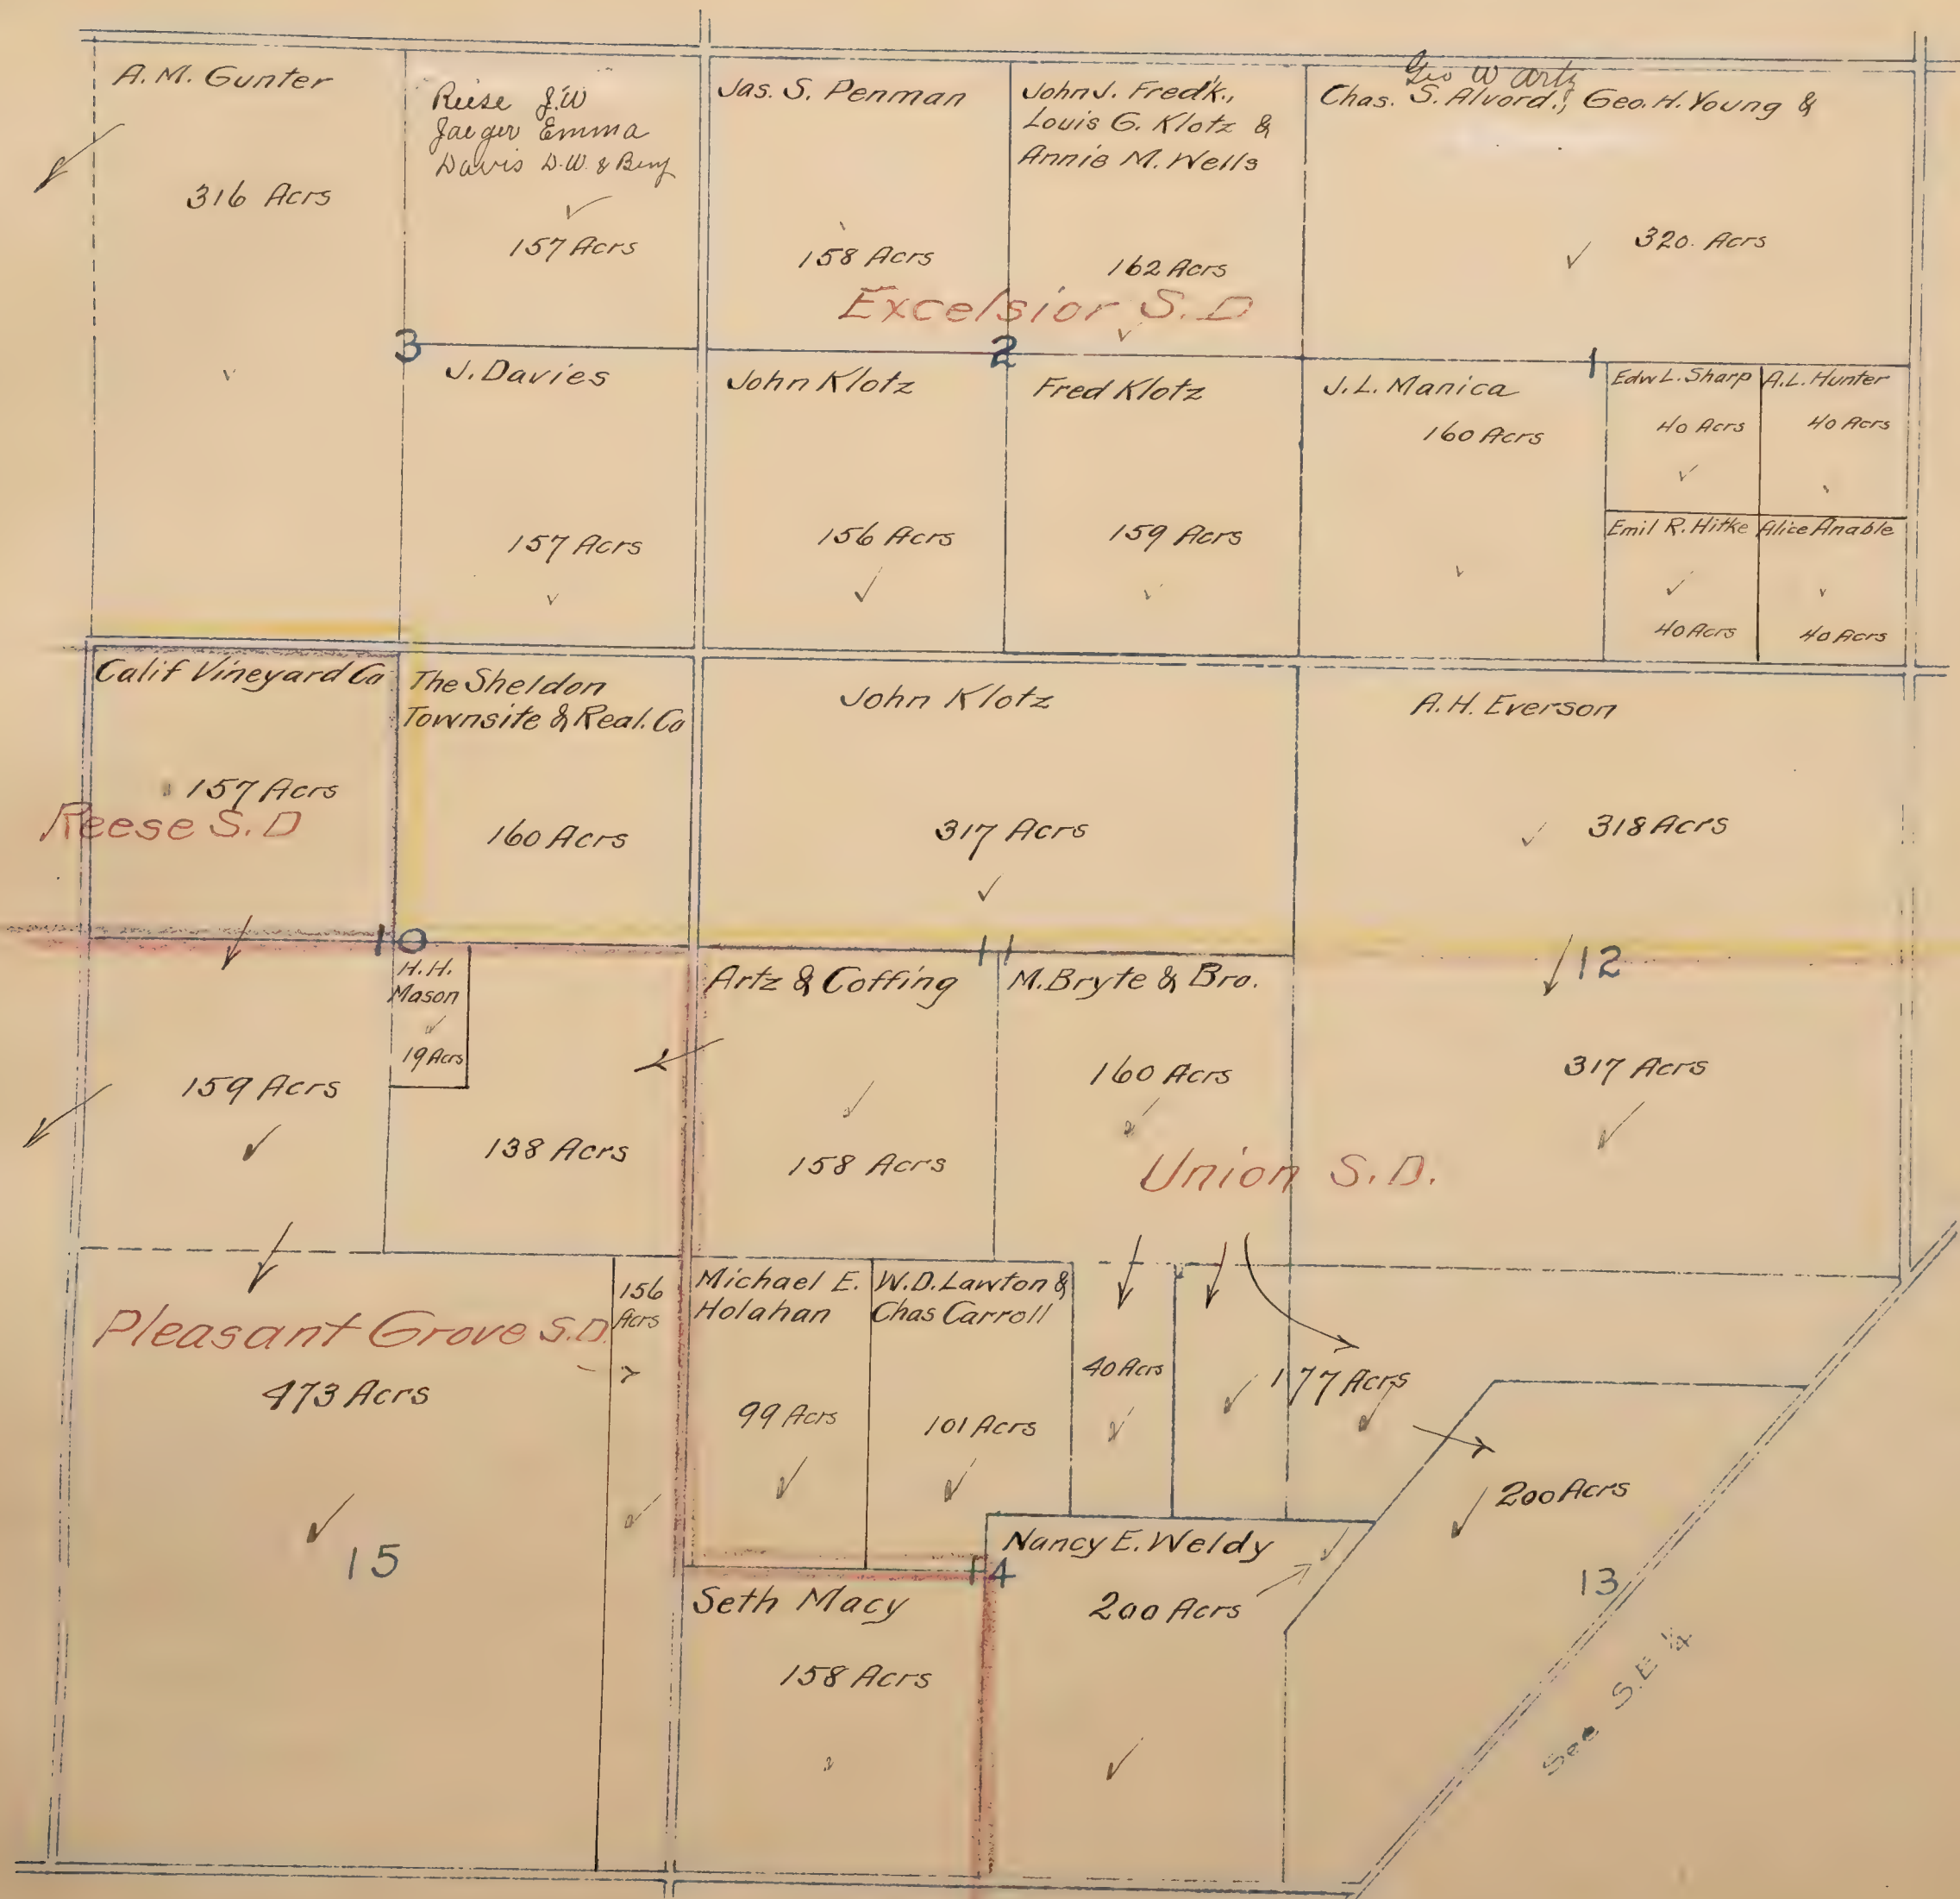 A.M. Gunter
316 Acrs
Reese J.W
Jaeger Emma
Davis D.W. & Benj
157 Acrs
Jas. S. Penman
158 Acrs
John J. Fred'k.,
Louis G. Klotz &
Annie M. Wells
162 Acrs
Geo W Artz
Chas. S. Alvord., Geo. H. Young &
320. Acrs
Excelsior S.D
3
2
1
J. Davies
157 Acrs
John Klotz
156 Acrs
Fred Klotz
159 Acrs
J. L. Manica
160 Acrs
Edw L. Sharp
40 Acrs
A.L. Hunter
40 Acrs
Emil R. Hitke
40 Acrs
Alice Anable
40 Acrs
Calif Vineyard Co
157 Acrs
Reese S.D
The Sheldon
Townsite & Real. Co
160 Acrs
John Klotz
317 Acrs
A.H. Everson
318 Acrs
10
11
12
159 Acrs
H.H.
Mason
19 Acrs
138 Acrs
Artz & Coffing
158 Acrs
M. Bryte & Bro.
160 Acrs
317 Acrs
Union S.D.
Pleasant Grove S.D.
473 Acrs
15
156
Acrs
Michael E.
Holahan
99 Acrs
W.D. Lawton &
Chas Carroll
101 Acrs
40 Acrs
177 Acrs
200 Acrs
13
14
Nancy E. Weldy
200 Acrs
Seth Macy
158 Acrs
See S.E ¼